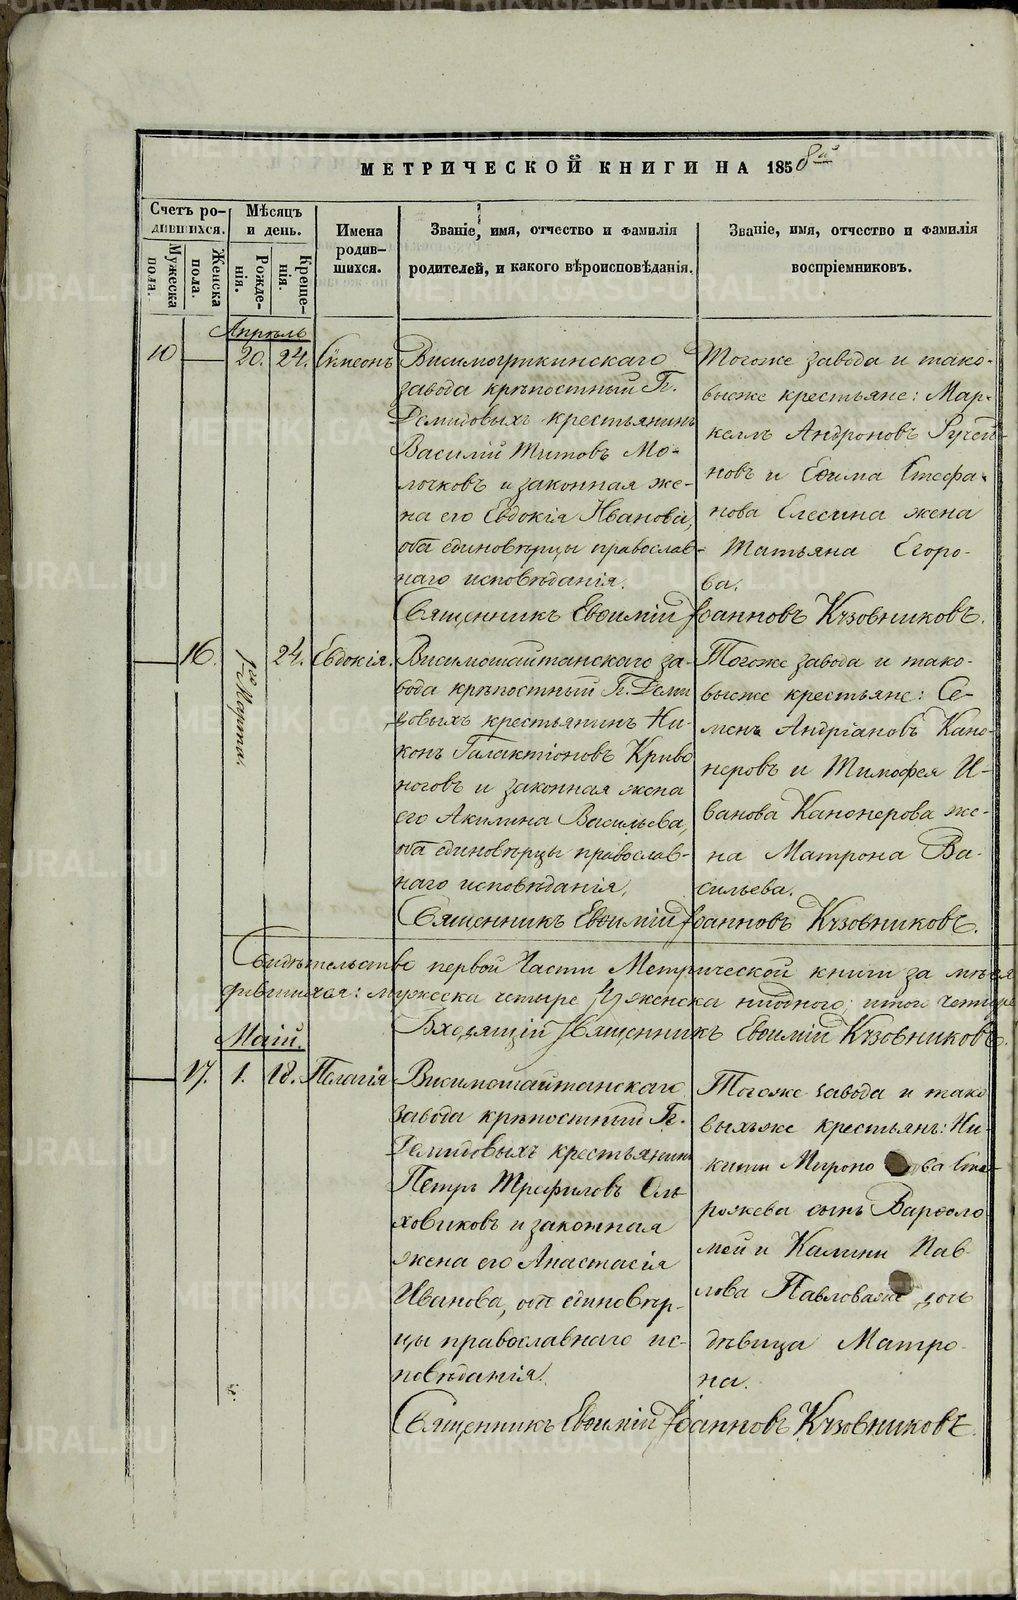 МЕТРИЧЕСКОЙ КНИГИ НА 1858й
Счетъ ро-
дившихся.
Мѣсяцъ
и день.
Имена
родив-
шихся.
Званіе, имя, отчество и фамилія
родителей, и какого вѣроисповѣданія.
Званіе, имя, отчество и фамилія
воспріемниковъ.
Мужеска
пола.
Женска
пола.
Рожде-
нія.
Креще-
нія.
Апрѣль
10
20.
24.
Симеонъ
Висимоуткинскаго
завода крѣпостный Гг.
Демидовыхъ крестьянинъ
Василій Титовъ Мо-
лочковъ и законная же-
на его Евдокія Иванова,
оба единовѣрцы православ-
наго исповѣданія.
Тогоже завода и тако-
выеже крестьяне: Мар-
келлъ Андроновъ Ручей-
новъ и Ефима Стефа-
нова Елесина жена
Татьяна Егоро-
ва.
Священникъ Евфимій Іоанновъ Кузовниковъ.
16.
1го Марта.
24.
Евдокія.
Висимошайтанскаго за-
вода крѣпостный Гг. Деми
довыхъ крестьянинъ Ни-
конъ Галактіоновъ Криво
ноговъ и законная жена
его Акилина Васильева,
оба единовѣрцы православ-
наго исповѣданія.
Тогоже завода и тако-
выеже крестьяне: Се-
менъ Андріановъ Кано-
неровъ и Тимофея И-
ванова Канонерова же-
на Матрона Ва-
сильева.
Священникъ Евфимій Іоанновъ Кузовниковъ.
Свидѣтельство первой Части Метрической книги за мѣся
мужеска четыре женска ниодного; итого четыре
Священникъ Евфимій Кузовниковъ.
Маій.
17.
1.
18.
Пелагія
Висимошайтанскаго
завода крѣпостный Гг.
Демидовыхъ крестьянинъ
Петръ Трефиловъ Оль
ховиковъ и законная
жена его Анастасія
Иванова, оба единовѣр-
цы православнаго ис-
повѣданія.
Тогоже завода и тако
выхъже крестьянъ: Ни-
киты Мироно ва Сто-
рожева сынъ Варфоло
мей и Калины Пав-
лова Павловаже дочь
дѣвица Матро-
на.
Священникъ Евфимій Іоанновъ Кузовниковъ.
METRIKI.GASO-URAL.RU